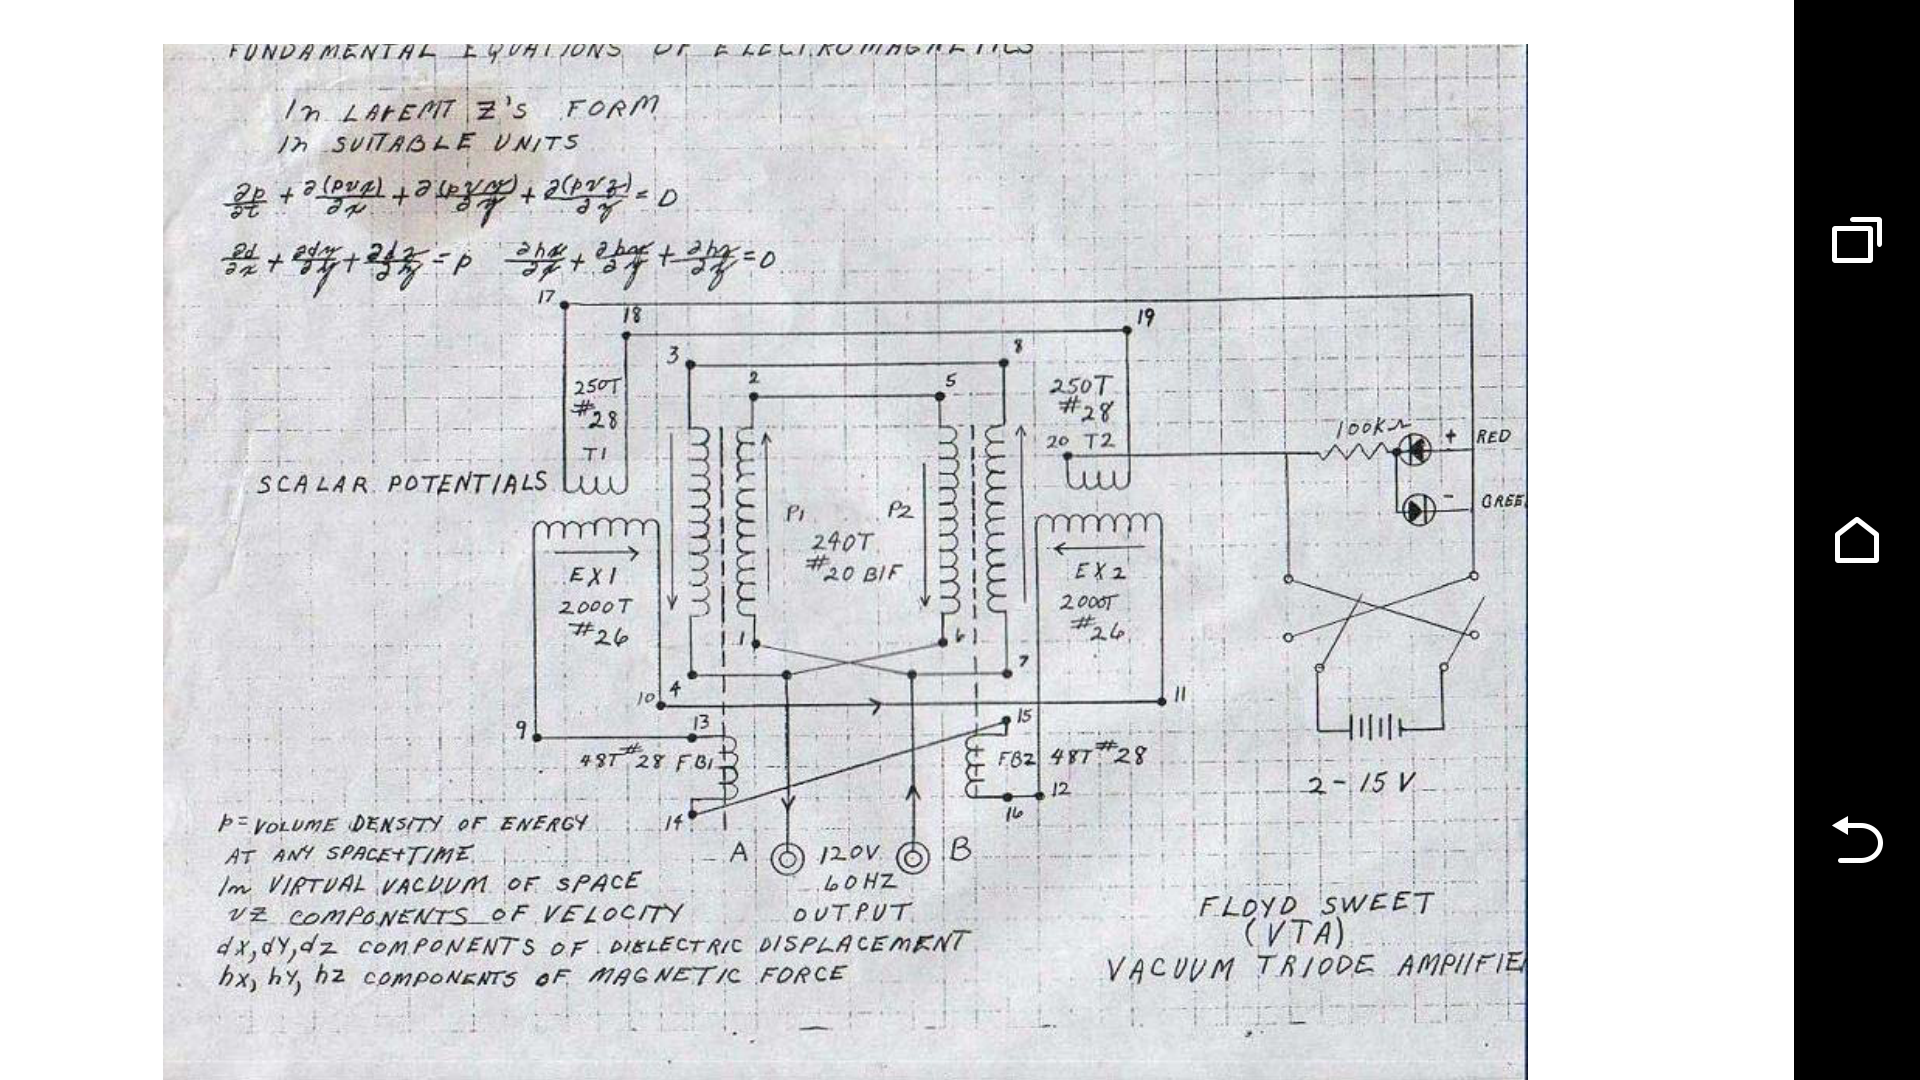 FUNDAMENTAL EQUATIONS OF ELECTROMAGNETICS
In LAREMT Z'S FORM
In SUITABLE UNITS
∂p/∂t + ∂(pvx)/∂x + ∂(pvy)/∂y + ∂(pvz)/∂z = 0
∂d/∂x + ∂dy/∂y + ∂dz/∂z = p ∂hx/∂x + ∂hy/∂y + ∂hz/∂z = 0
17
18
19
3
8
2
5
250T
#28
T1
250T
#28
20 T2
100KΩ
+ RED
- GREE
SCALAR POTENTIALS
P1
P2
240T
#20 BIF
EX1
2000T
#26
EX2
2000T
#26
1
6
4
7
10
11
9
13
15
48T #28 FB1
FB2 48T #28
12
14
16
2-15 V
A 120V B
60HZ
OUTPUT
p= VOLUME DENSITY OF ENERGY
AT ANY SPACE+TIME
In VIRTUAL VACUUM OF SPACE
VZ COMPONENTS OF VELOCITY
dx, dy, dz COMPONENTS OF DIELECTRIC DISPLACEMENT
hx, hy, hz COMPONENTS OF MAGNETIC FORCE
FLOYD SWEET
(VTA)
VACUUM TRIODE AMPlIFIE